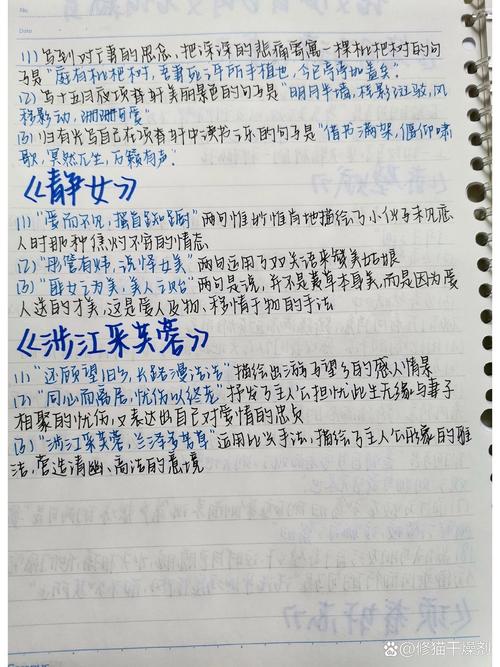 (1) 写到对亡妻的思念，把深深的悲痛寄寓一棵枇杷树的句
子是"庭有枇杷树，吾妻死之年所手植也，今已亭亭如盖矣"
(2) 写十五月夜项脊轩美丽景色的句子是"明月半墙，桂影斑驳，风
移影动，珊珊可爱"
(3) 归有光写自己在项脊轩中读书之乐的句子是"借书满架，偃仰啸
歌，冥然兀坐，万籁有声"
《静女》
(1) "爱而不见，搔首踟蹰"两句惟妙惟肖地描绘了小伙子未见恋
人时那种焦灼不安的情态
(2) "彤管有炜，说怿女美"两句运用了双关语来赞美姑娘
(3) "匪女之为美，美人之贻"两句是说，并不是荑草本身美，而是因为爱
人送的才美，这是爱人及物、移情于物的手法
《涉江采芙蓉》
(1) "还顾望旧乡，长路漫浩浩"描绘出游子望乡的感人情景
(2) "同心而离居，忧伤以终老"抒发了主人公担忧此生无缘与妻子
相聚的忧伤，又表达出自己对爱情的忠贞
(3) "涉江采芙蓉，兰泽多芳草"运用比兴手法，描绘了主人公形象的雅
洁，营造清幽、高洁的意境
@修猫干燥剂